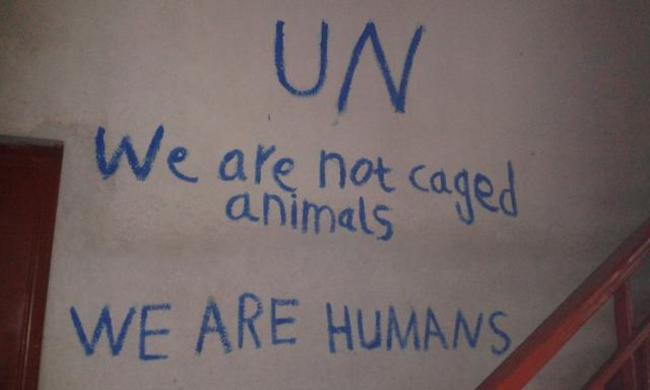 UN
We are not caged
animals
WE ARE HUMANS